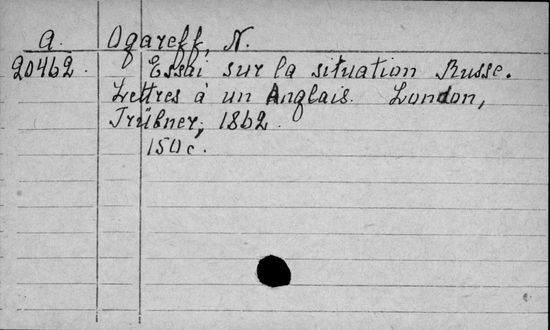 a. Ogareff, N.
20462. Essai sur la situation Russe.
Lettres à un Anglais. London,
Trübner, 1862.
150c.